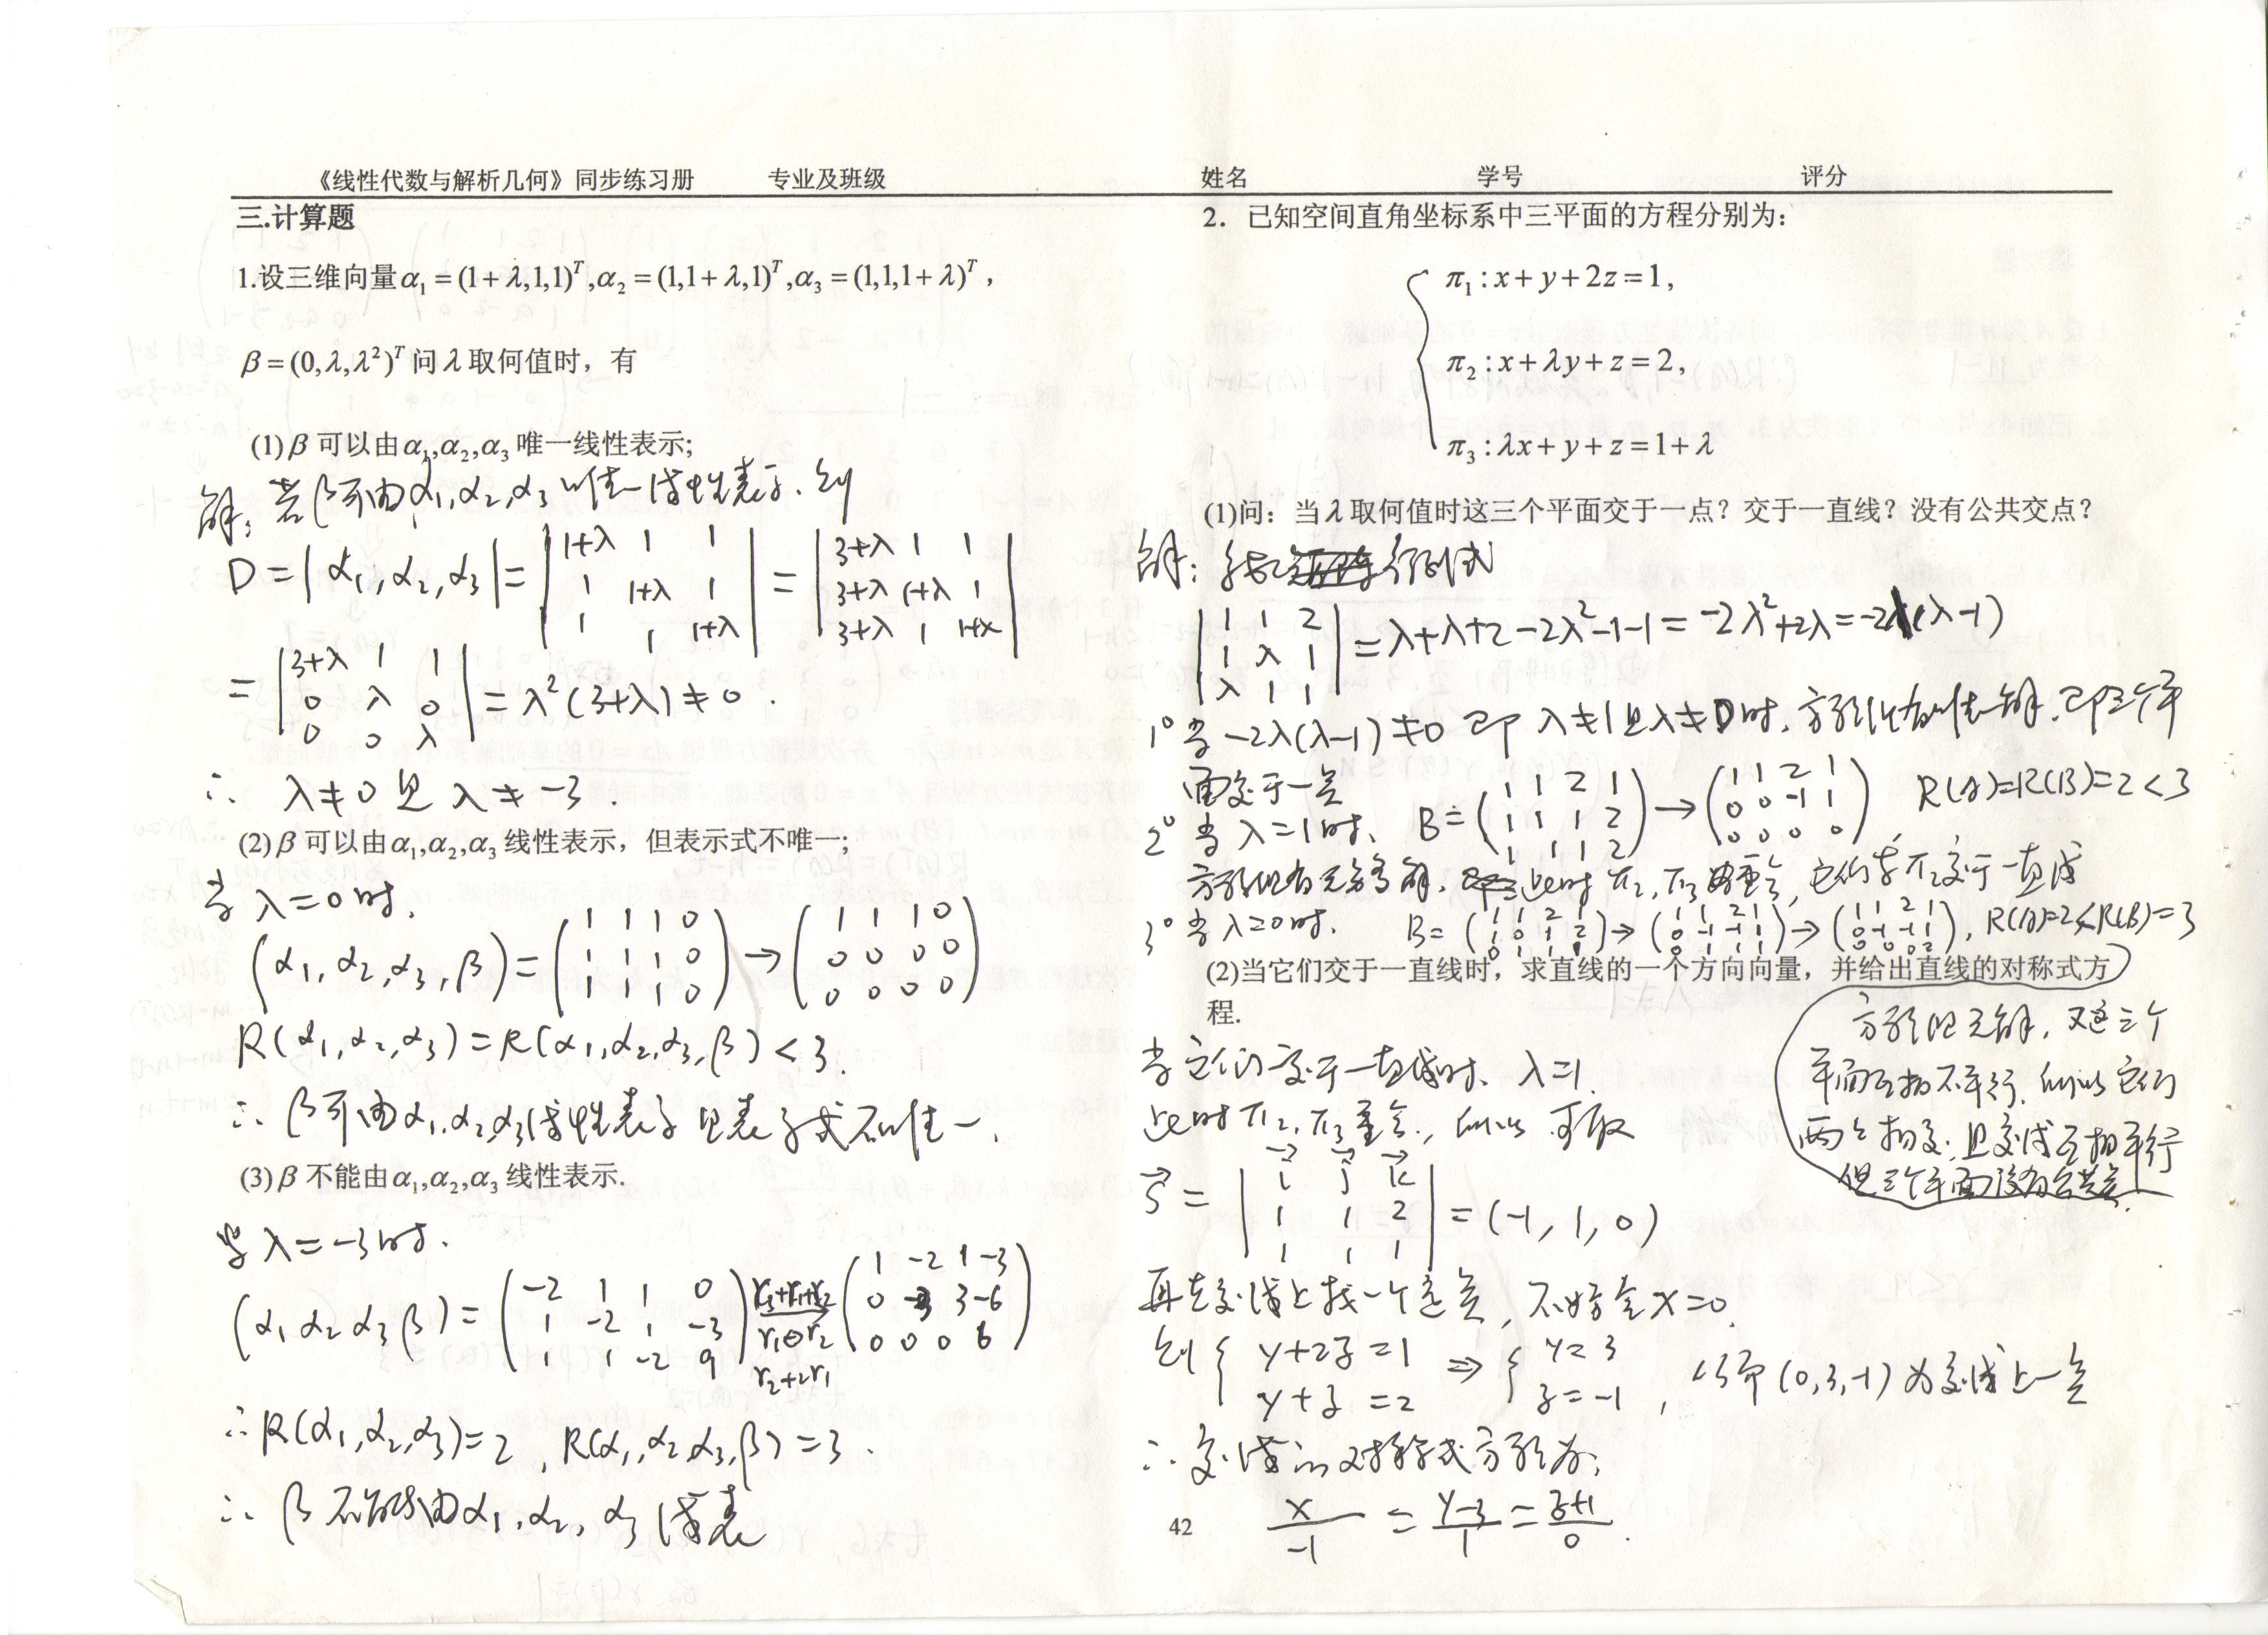 《线性代数与解析几何》同步练习册 专业及班级 姓名 学号 评分
三.计算题
1.设三维向量α₁=(1+λ,1,1)ᵀ,α₂=(1,1+λ,1)ᵀ,α₃=(1,1,1+λ)ᵀ,
β=(0,λ,λ²)ᵀ问λ取何值时，有
(1)β可以由α₁,α₂,α₃唯一线性表示;
解：若β可由α₁,α₂,α₃唯一线性表示，则
D=|α₁,α₂,α₃|=|1+λ 1 1; 1 1+λ 1; 1 1 1+λ|=|3+λ 1 1; 3+λ 1+λ 1; 3+λ 1 1+λ|
=|3+λ 1 1; 0 λ 0; 0 0 λ|=λ²(3+λ)≠0.
∴ λ≠0且λ≠-3.
(2)β可以由α₁,α₂,α₃线性表示，但表示式不唯一;
当λ=0时,
(α₁,α₂,α₃,β)=(1 1 1 0; 1 1 1 0; 1 1 1 0)→(1 1 1 0; 0 0 0 0; 0 0 0 0)
R(α₁,α₂,α₃)=R(α₁,α₂,α₃,β)<3.
∴ β可由α₁,α₂,α₃线性表示且表示式不唯一.
(3)β不能由α₁,α₂,α₃线性表示.
当λ=-3时.
(α₁ α₂ α₃ β)=(-2 1 1 0; 1 -2 1 -3; 1 1 -2 9) r₃+r₁+r₂ r₁↔r₂ r₂+2r₁ →(1 -2 1 -3; 0 -3 3 -6; 0 0 0 6)
∴R(α₁,α₂,α₃)=2, R(α₁,α₂,α₃,β)=3.
∴ β不能由α₁,α₂,α₃线表
2. 已知空间直角坐标系中三平面的方程分别为:
π₁:x+y+2z=1,
π₂:x+λy+z=2,
π₃:λx+y+z=1+λ
(1)问：当λ取何值时这三个平面交于一点？交于一直线？没有公共交点？
解：系数行列式
|1 1 2; 1 λ 1; λ 1 1|=λ+λ+2-2λ²-1-1=-2λ²+2λ=-2λ(λ-1)
1° 当-2λ(λ-1)≠0 即λ≠1且λ≠0时，方程组有唯一解，即三个平
面交于一点
2° 当λ=1时, B=(1 1 2 1; 1 1 1 2; 1 1 1 2)→(1 1 2 1; 0 0 -1 1; 0 0 0 0) R(A)=R(B)=2<3
方程组有无穷多解，此时π₂,π₃重合，它们与π₁交于一直线
3° 当λ=0时, B=(1 1 2 1; 1 0 1 2; 0 1 1 1)→(1 1 2 1; 0 -1 -1 1; 0 1 1 1)→(1 1 2 1; 0 -1 -1 1; 0 0 0 2), R(A)=2<R(B)=3
方程组无解，又这三个
平面互相不平行，所以它们
两两相交，且交线互相平行
但三个平面没有公共点.
(2)当它们交于一直线时，求直线的一个方向向量，并给出直线的对称式方
程.
当它们交于一直线时，λ=1.
此时π₂,π₃重合，所以可取
s⃗=|i⃗ j⃗ k⃗; 1 1 2; 1 1 1|=(-1,1,0)
再在交线上找一个定点，不妨令x=0.
则{y+2z=1; y+z=2 ⇒ {y=3; z=-1, 从而(0,3,-1)为交线上一点
∴交线的对称式方程为:
x/-1=(y-3)/1=(z+1)/0.
42